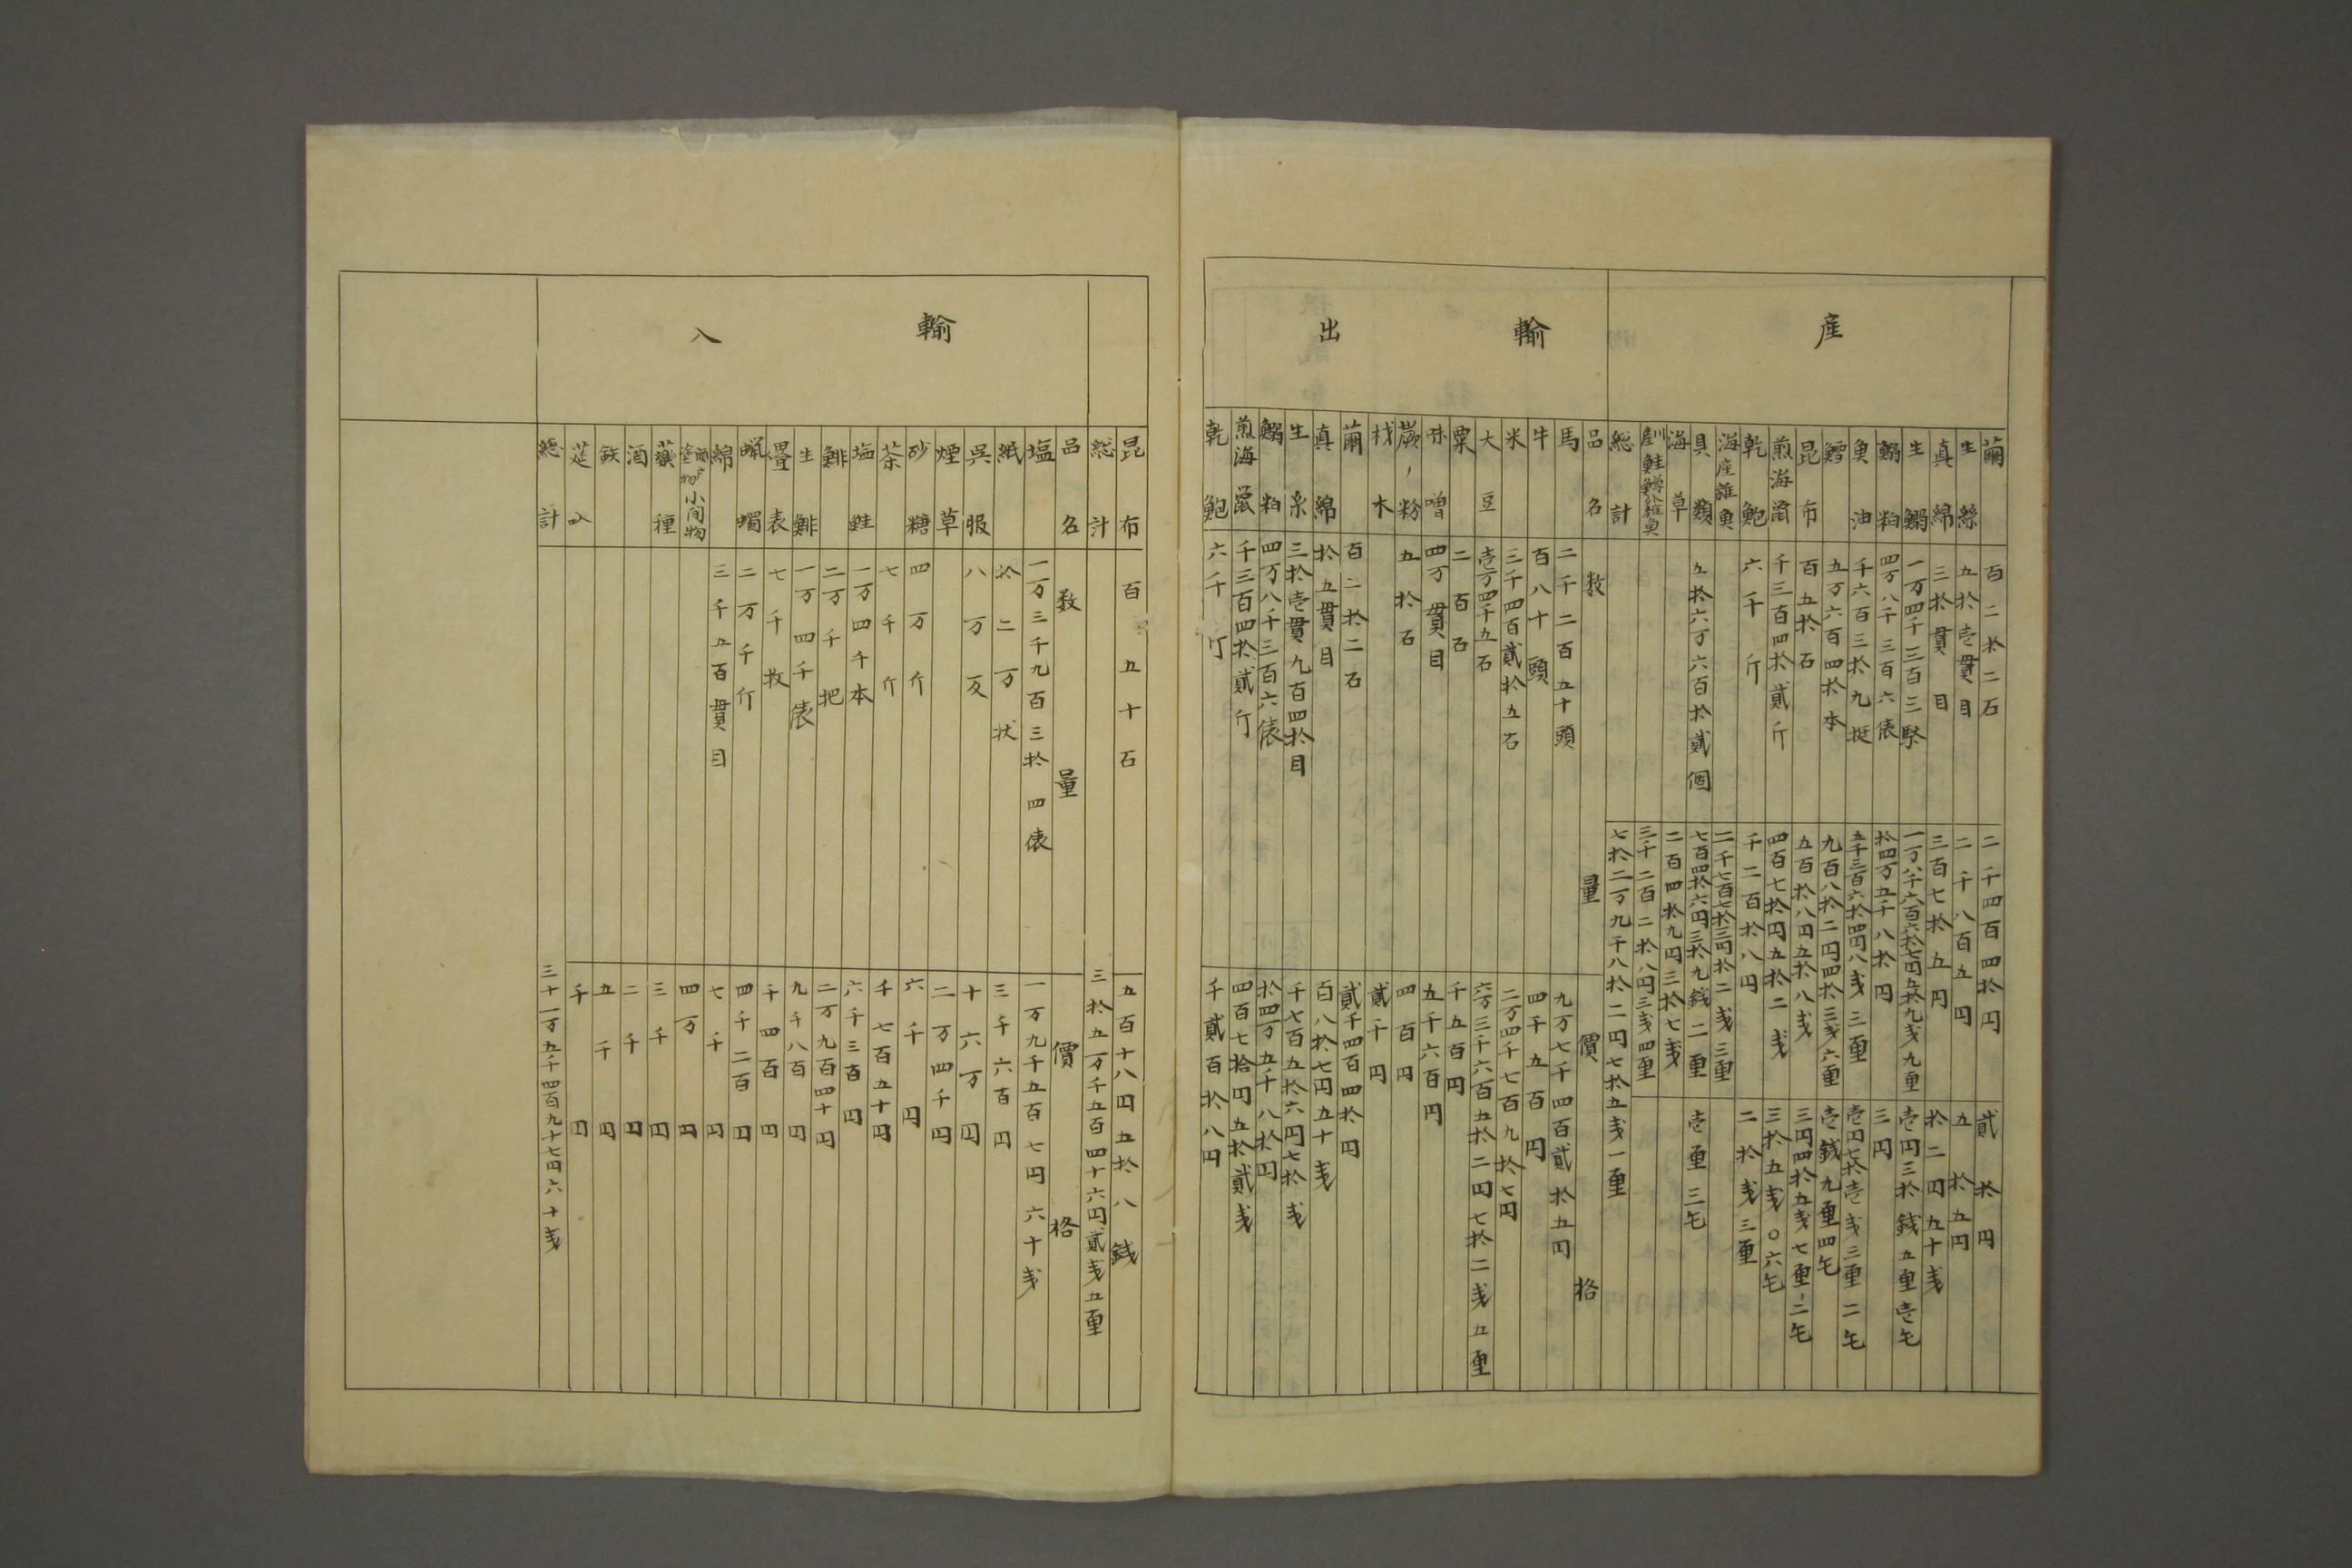 産
繭 百二拾二石 二千四百四拾円 貳拾円
生絲 五拾壱貫目 二千八百五円 五拾五円
真綿 三拾貫目 三百七拾五円 拾二円五十戋
生鰯 一万四千三百三 一万八千六百六拾七円五拾九戋九厘 壱円三拾銭五厘壱毛
鰯粕 四万八千三百六俵 拾四万五千八拾円 三円
魚油 千六百三拾九挺 五千三百六拾四円八戋三厘 壱円七拾壱戋三厘二毛
鱈 五万六百四拾本 九百八拾二円四拾三戋六厘 壱銭九厘四毛
昆布 百五拾石 五百拾八円五拾八戋 三円四拾五戋七厘二毛
煎海鼡 千三百四拾貳斤 四百七拾円五拾二戋 三拾五戋〇六毛
乾鮑 六千斤 千二百拾八円 二拾戋三厘
海産雑魚 二千七百七拾三円拾二戋三厘
貝類 五拾六万六百拾貳個 七百四拾六円三拾九銭二厘 壱厘三毛
海草 二百四拾九円三拾七戋
鮭鱒雑魚 三千二百二拾八円三戋四厘
総計 七拾二万九千八拾二円七拾五戋一厘
輸出
品名 数量 價格
馬 二千二百五十頭 九万七千四百貳拾五円
牛 百八十頭 四千五百円
米 三千四百貳拾五石 二万四千七百九拾七円
大豆 壱万四千五石 六万三千六百五拾二円七拾二戋五厘
粟 二百石 千五百円
味噌 四万貫目 五千六百円
蕨ノ粉 五拾石 四百円
材木 貳千円
繭 百二拾二石 貳千四百四拾円
真綿 拾五貫目 百八拾七円五十戋
生糸 三拾壱貫九百四拾目 千七百五拾六円七拾戋
鰯粕 四万八千三百六俵 拾四万五千八拾円
煎海鼡 千三百四拾貳斤 四百七拾円五拾貳戋
乾鮑 六千斤 千貳百拾八円
昆布 百五十石 五百十八円五拾八銭
総計 三拾五万千五百四十六円貳戋五厘
輸入
品名 数量 價格
塩 一万三千九百三拾四俵 一万九千五百七円六十戋
紙 拾二万状 三千六百円
呉服 八万反 十六万円
煙草 二万四千円
砂糖 四万斤 六千円
茶 七千斤 千七百五十円
塩鮭 一万四千本 六千三百円
鯡 二万千把 二万九百四十円
生鯡 一万四千俵 九千八百円
畳表 七千枚 千四百円
蝋 二万千斤 四千二百円
綿 三千五百貫目 七千円
小間物 四万円
薬種 三千円
酒 二千円
鉄 五千円
千円
総計 三十一万五千四百九十七円六十戋